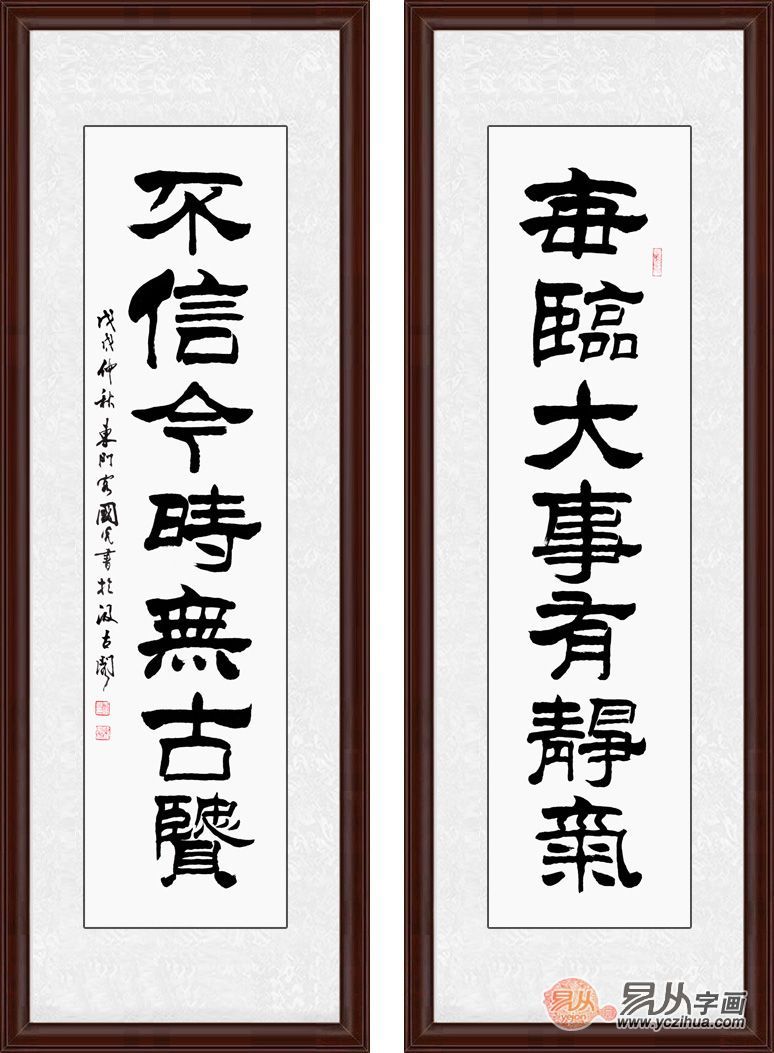 每臨大事有靜氣
不信今時無古贒
戊戌仲秋東門客國光書於汲古閣
易从
yejon
易从字画
www.yczihua.com